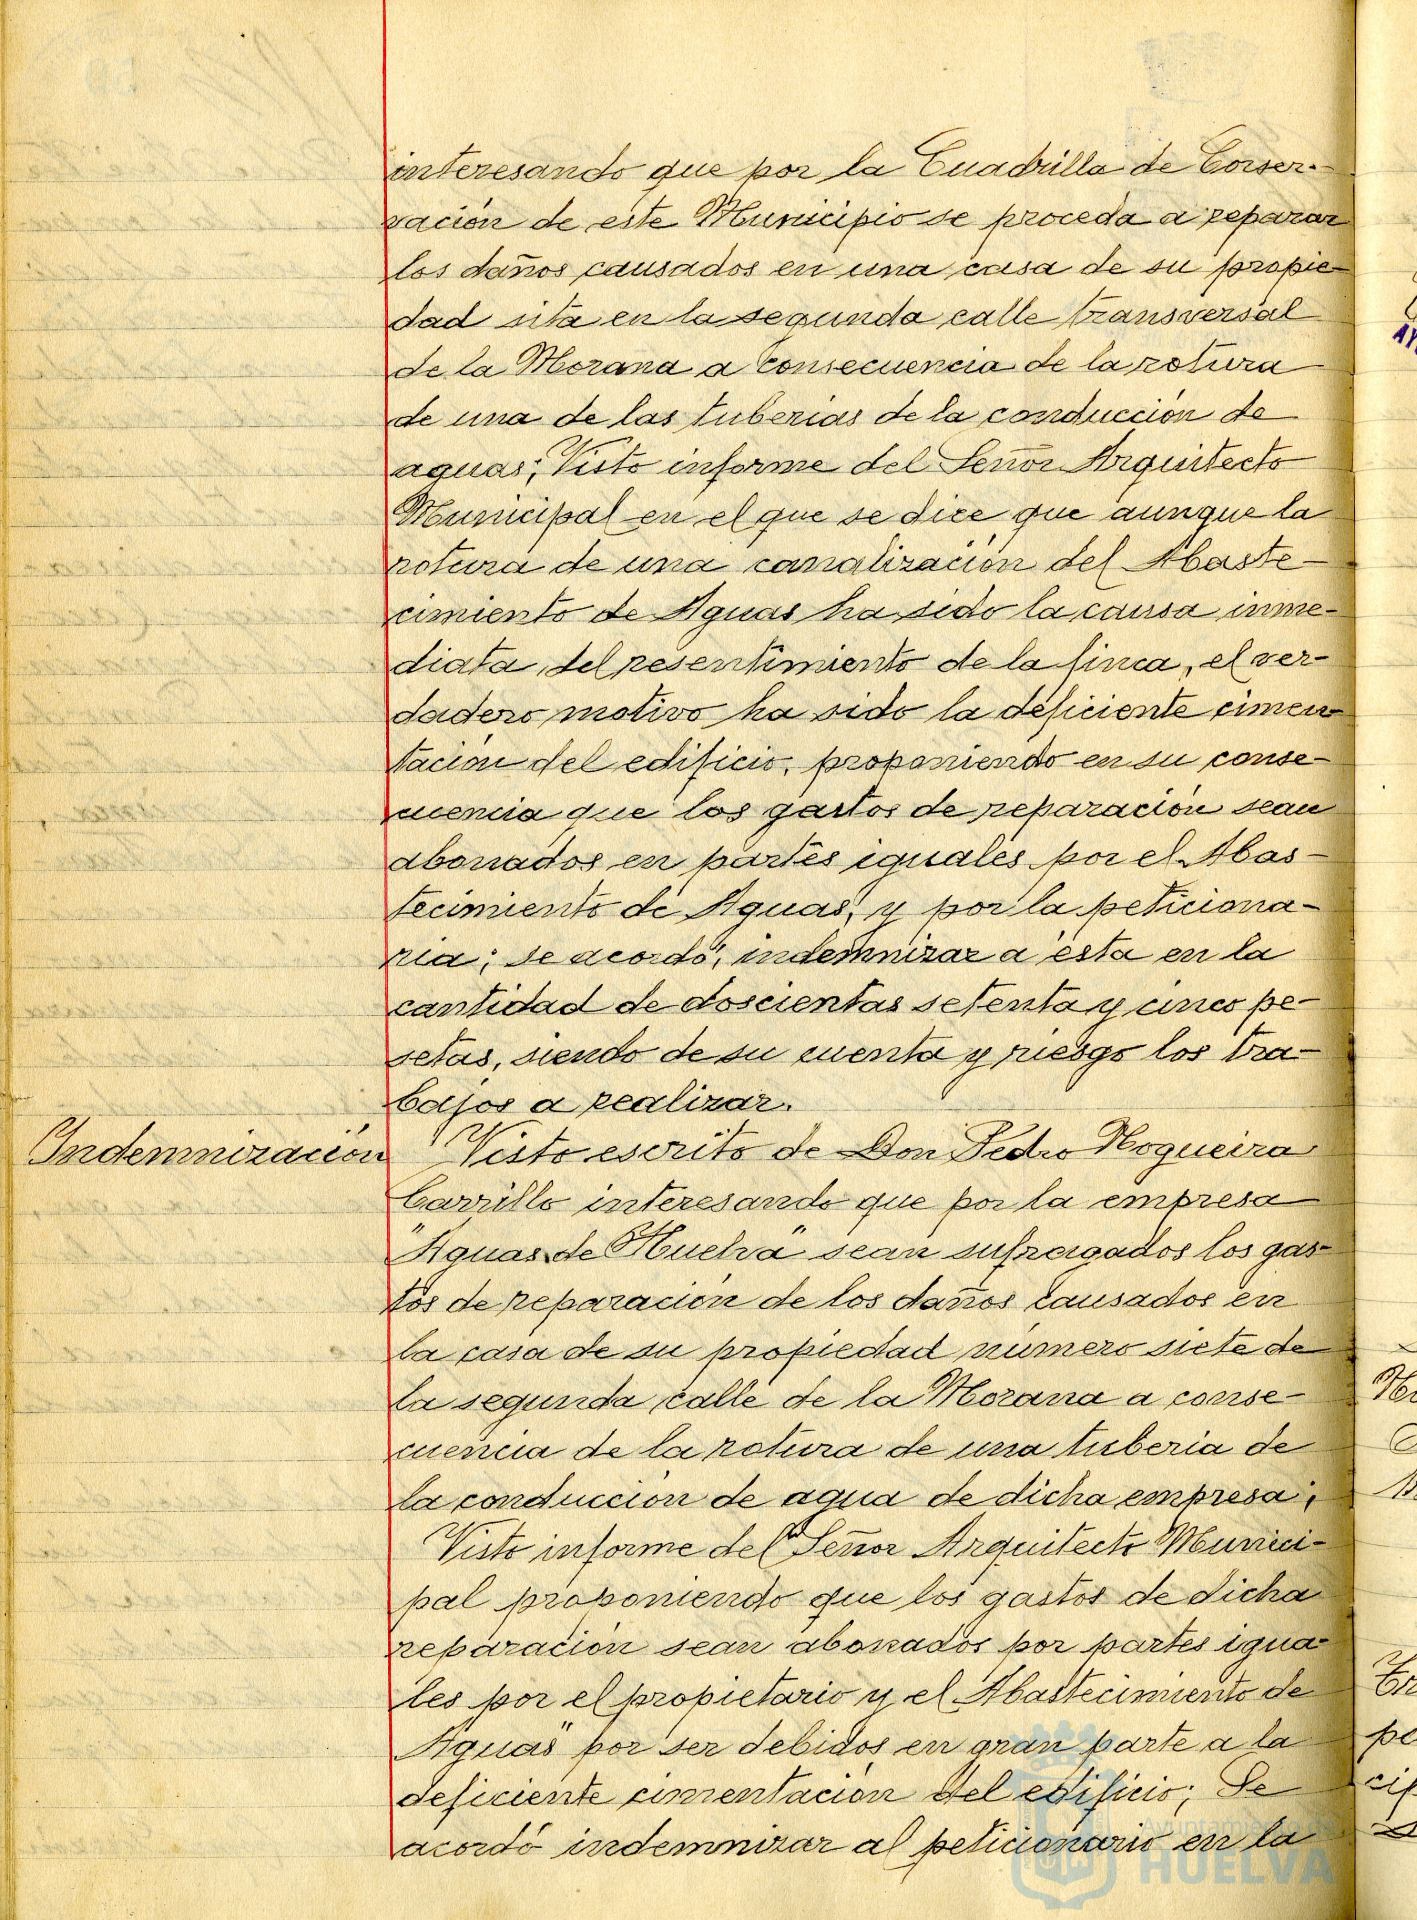 interesando que por la Cuadrilla de Conser-
vación de este Municipio se proceda a reparar
los daños causados en una casa de su propie-
dad sita en la segunda calle transversal
de la Morana a consecuencia de la rotura
de una de las tuberias de la conducción de
aguas; Visto informe del Señor Arquitecto
Municipal en el que se dice que aunque la
rotura de una canalización del Abaste-
cimiento de Aguas ha sido la causa inme-
diata del resentimiento de la finca, el ver-
dadero motivo ha sido la deficiente cimen-
tación del edificio, proponiendo en su conse-
cuencia que los gastos de reparación sean
abonados en partes iguales por el Abas-
tecimiento de Aguas, y por la peticiona-
ria; se acordó, indemnizar a ésta en la
cantidad de doscientas setenta y cinco pe-
setas, siendo de su cuenta y riesgo los tra-
bajos a realizar.
Indemnización
Visto escrito de Don Pedro Nogueira
Carrillo interesando que por la empresa
"Aguas de Huelva" sean sufragados los gas-
tos de reparación de los daños causados en
la casa de su propiedad número siete de
la segunda calle de la Morana a conse-
cuencia de la rotura de una tuberia de
la conducción de agua de dicha empresa;
Visto informe del Señor Arquitecto Munici-
pal proponiendo que los gastos de dicha
reparación sean abonados por partes igua-
les por el propietario y el Abastecimiento de
Aguas" por ser debidos en gran parte a la
deficiente cimentación del edificio; Se
acordó indemnizar al peticionario en la
Ayuntamiento de
HUELVA